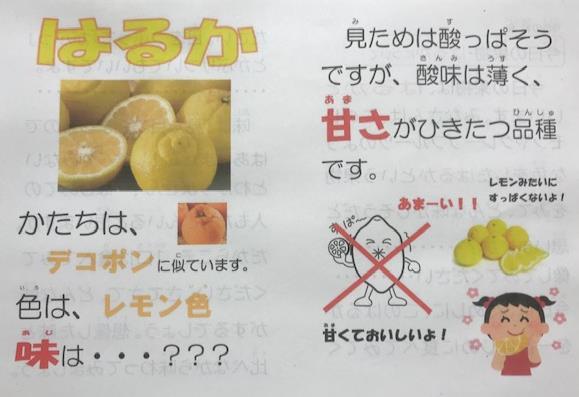 はるか
かたちは、
デコポンに似ています。
色は、レモン色
味は・・・???
見ためは酸っぱそう
ですが、酸味は薄く、
甘さがひきたつ品種
です。
レモンみたいに
すっぱくないよ!
あまーい!!
すっぱ〜
甘くておいしいよ!